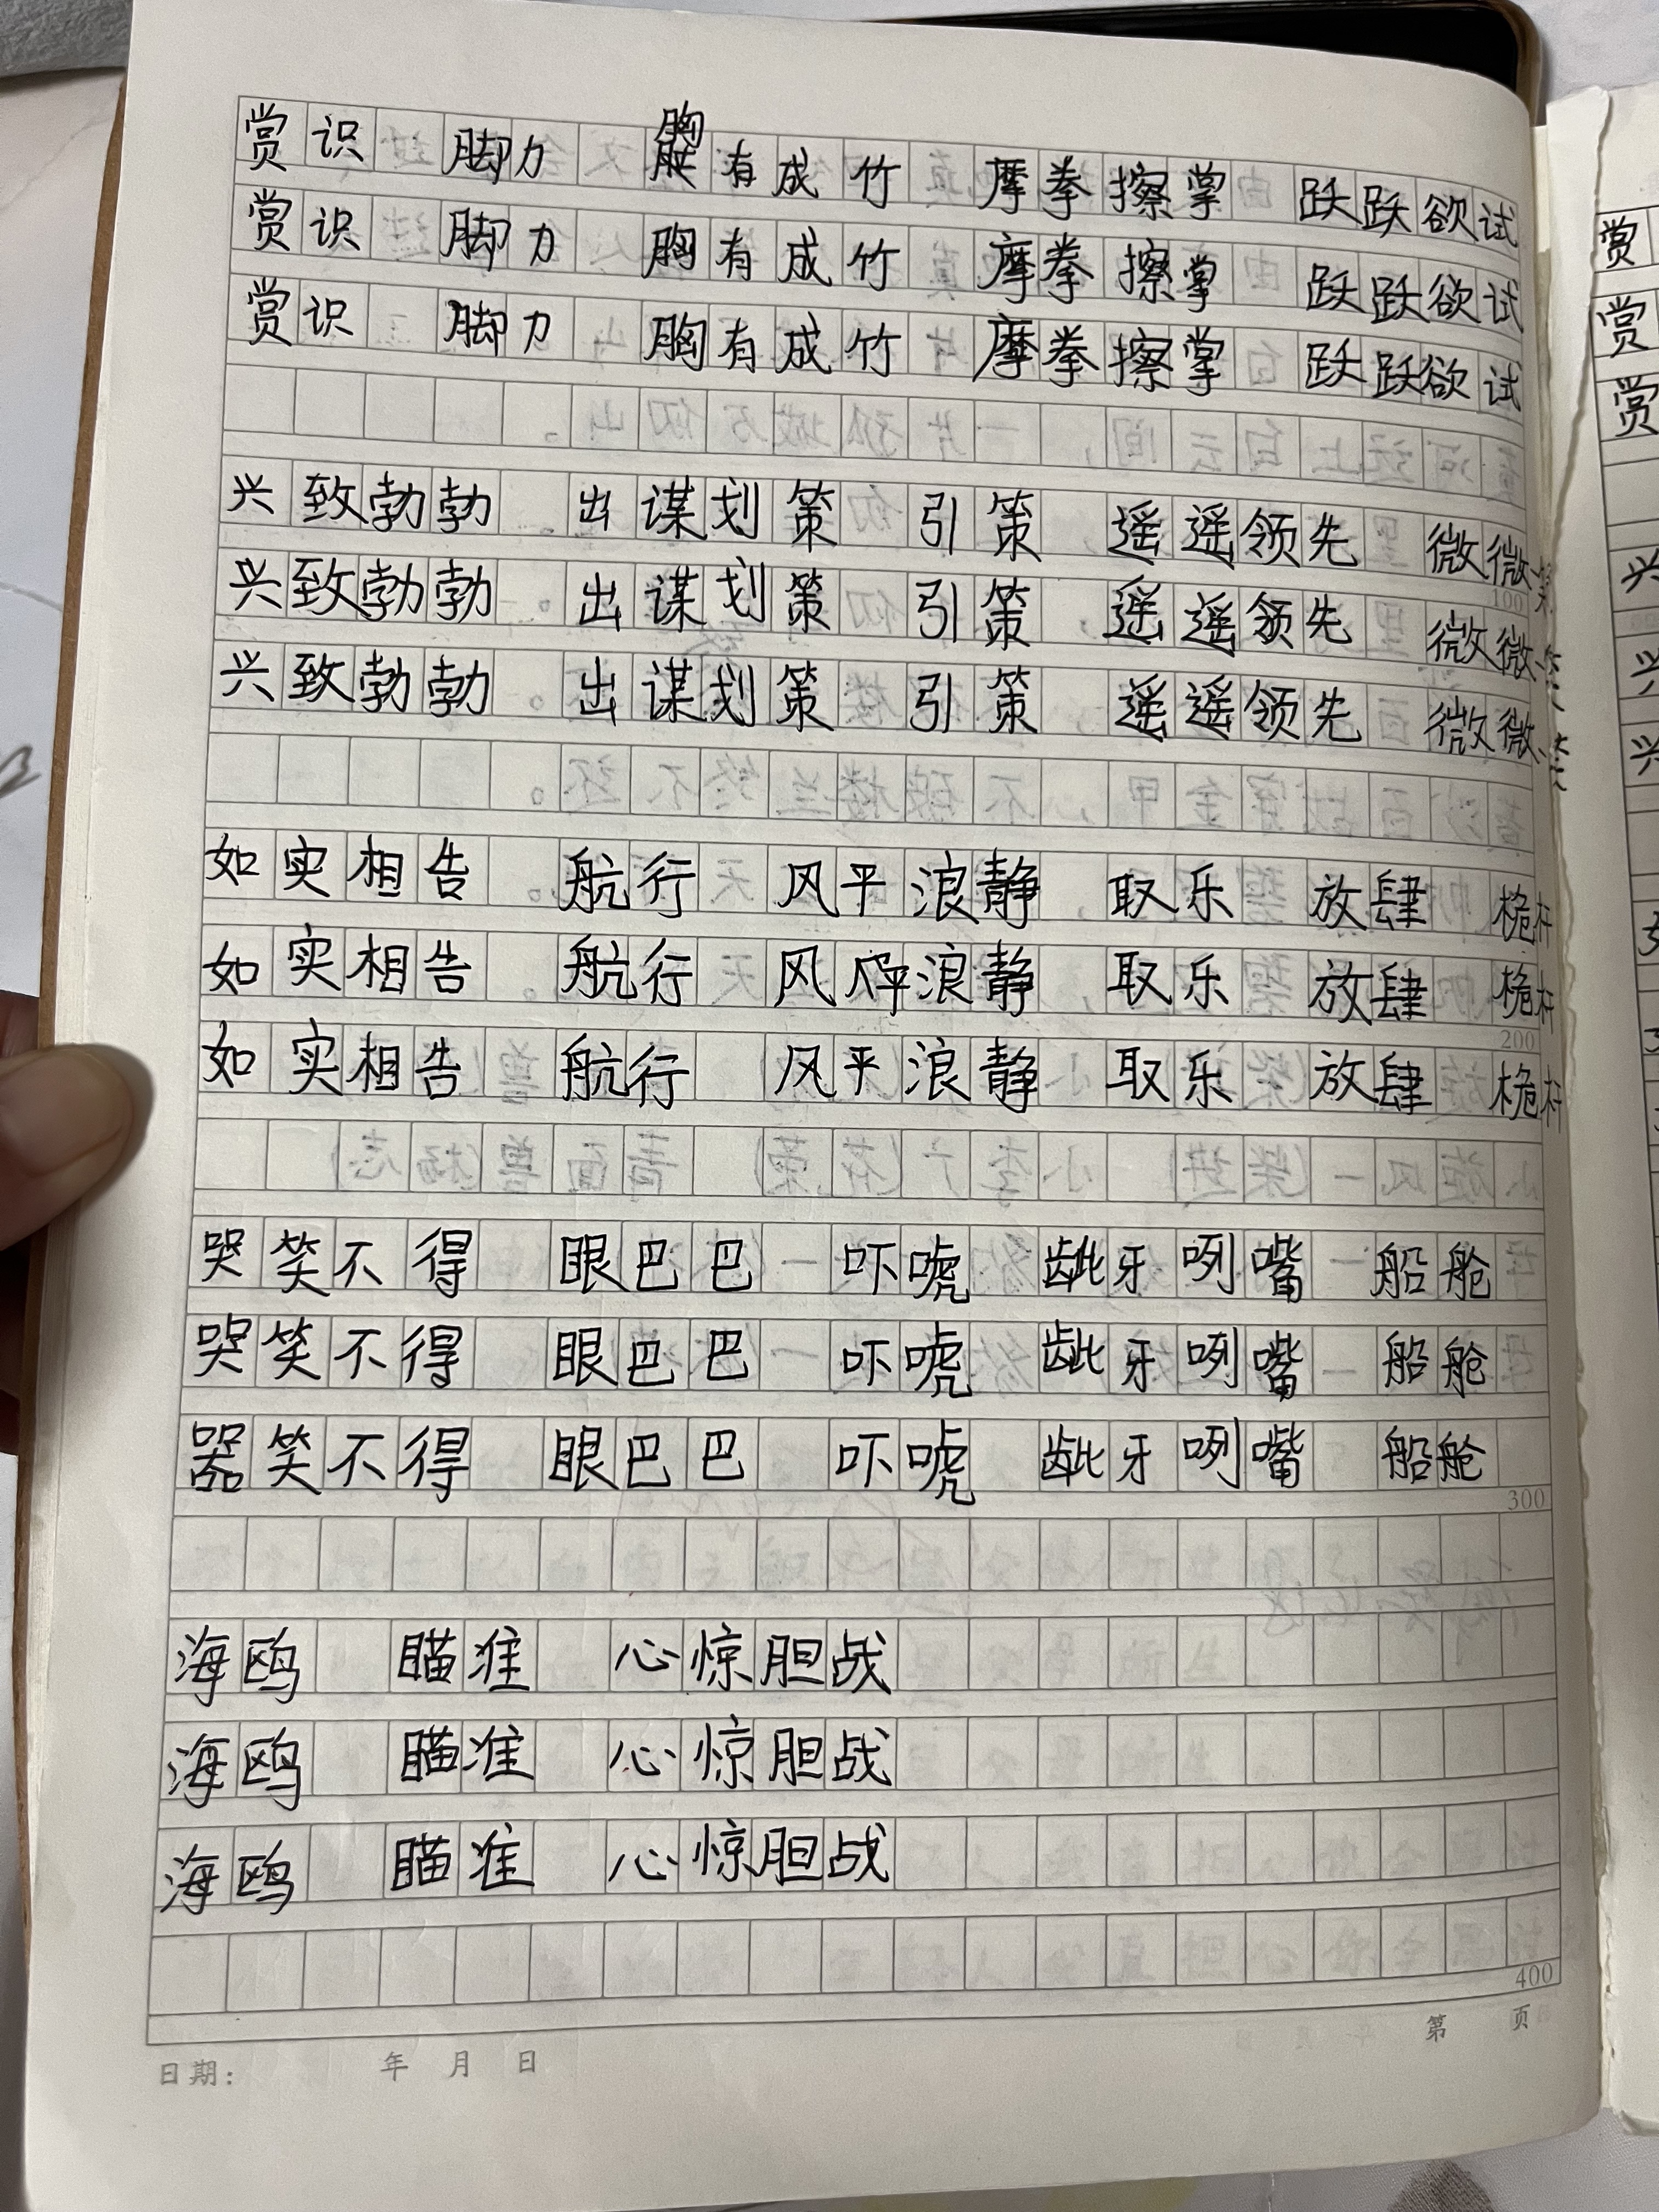 赏识 脚力 胸有成竹 摩拳擦掌 跃跃欲试
赏识 脚力 胸有成竹 摩拳擦掌 跃跃欲试
赏识 脚力 胸有成竹 摩拳擦掌 跃跃欲试
兴致勃勃 出谋划策 引策 遥遥领先 微微一笑
兴致勃勃 出谋划策 引策 遥遥领先 微微一笑
兴致勃勃 出谋划策 引策 遥遥领先 微微一笑
100
如实相告 航行 风平浪静 取乐 放肆 桅杆
如实相告 航行 风平浪静 取乐 放肆 桅杆
200
如实相告 航行 风平浪静 取乐 放肆 桅杆
哭笑不得 眼巴巴 吓唬 龇牙咧嘴 船舱
哭笑不得 眼巴巴 吓唬 龇牙咧嘴 船舱
器笑不得 眼巴巴 吓唬 龇牙咧嘴 船舱
300
海鸥 瞄准 心惊胆战
海鸥 瞄准 心惊胆战
海鸥 瞄准 心惊胆战
400
第 页
日期: 年 月 日
赏
赏
赏
兴
兴
兴